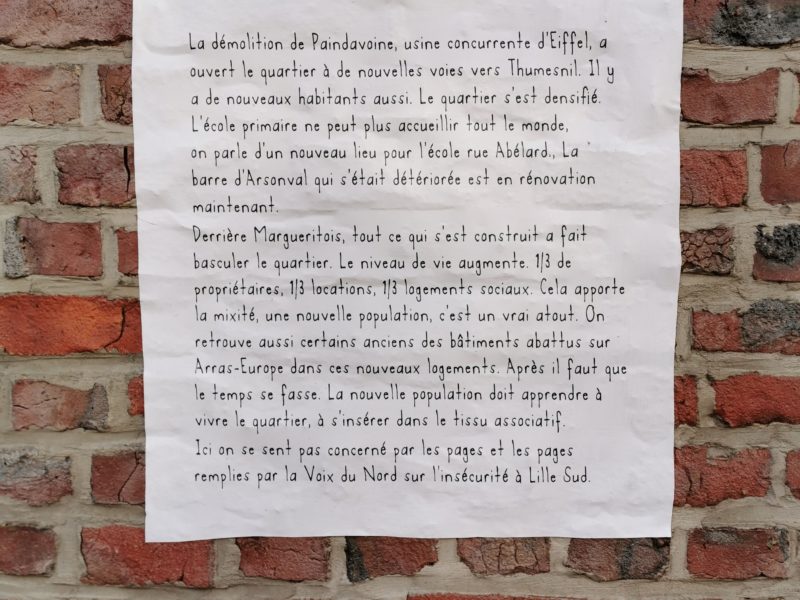 La démolition de Paindavoine, usine concurrente d'Eiffel, a
ouvert le quartier à de nouvelles voies vers Thumesnil. Il y
a de nouveaux habitants aussi. Le quartier s'est densifié.
L'école primaire ne peut plus accueillir tout le monde,
on parle d'un nouveau lieu pour l'école rue Abélard., La
barre d'Arsonval qui s'était détériorée est en rénovation
maintenant.
Derrière Margueritois, tout ce qui s'est construit a fait
basculer le quartier. Le niveau de vie augmente. 1/3 de
propriétaires, 1/3 locations, 1/3 logements sociaux. Cela apporte
la mixité, une nouvelle population, c'est un vrai atout. On
retrouve aussi certains anciens des bâtiments abattus sur
Arras-Europe dans ces nouveaux logements. Après il faut que
le temps se fasse. La nouvelle population doit apprendre à
vivre le quartier, à s'insérer dans le tissu associatif.
Ici on se sent pas concerné par les pages et les pages
remplies par la Voix du Nord sur l'insécurité à Lille Sud.